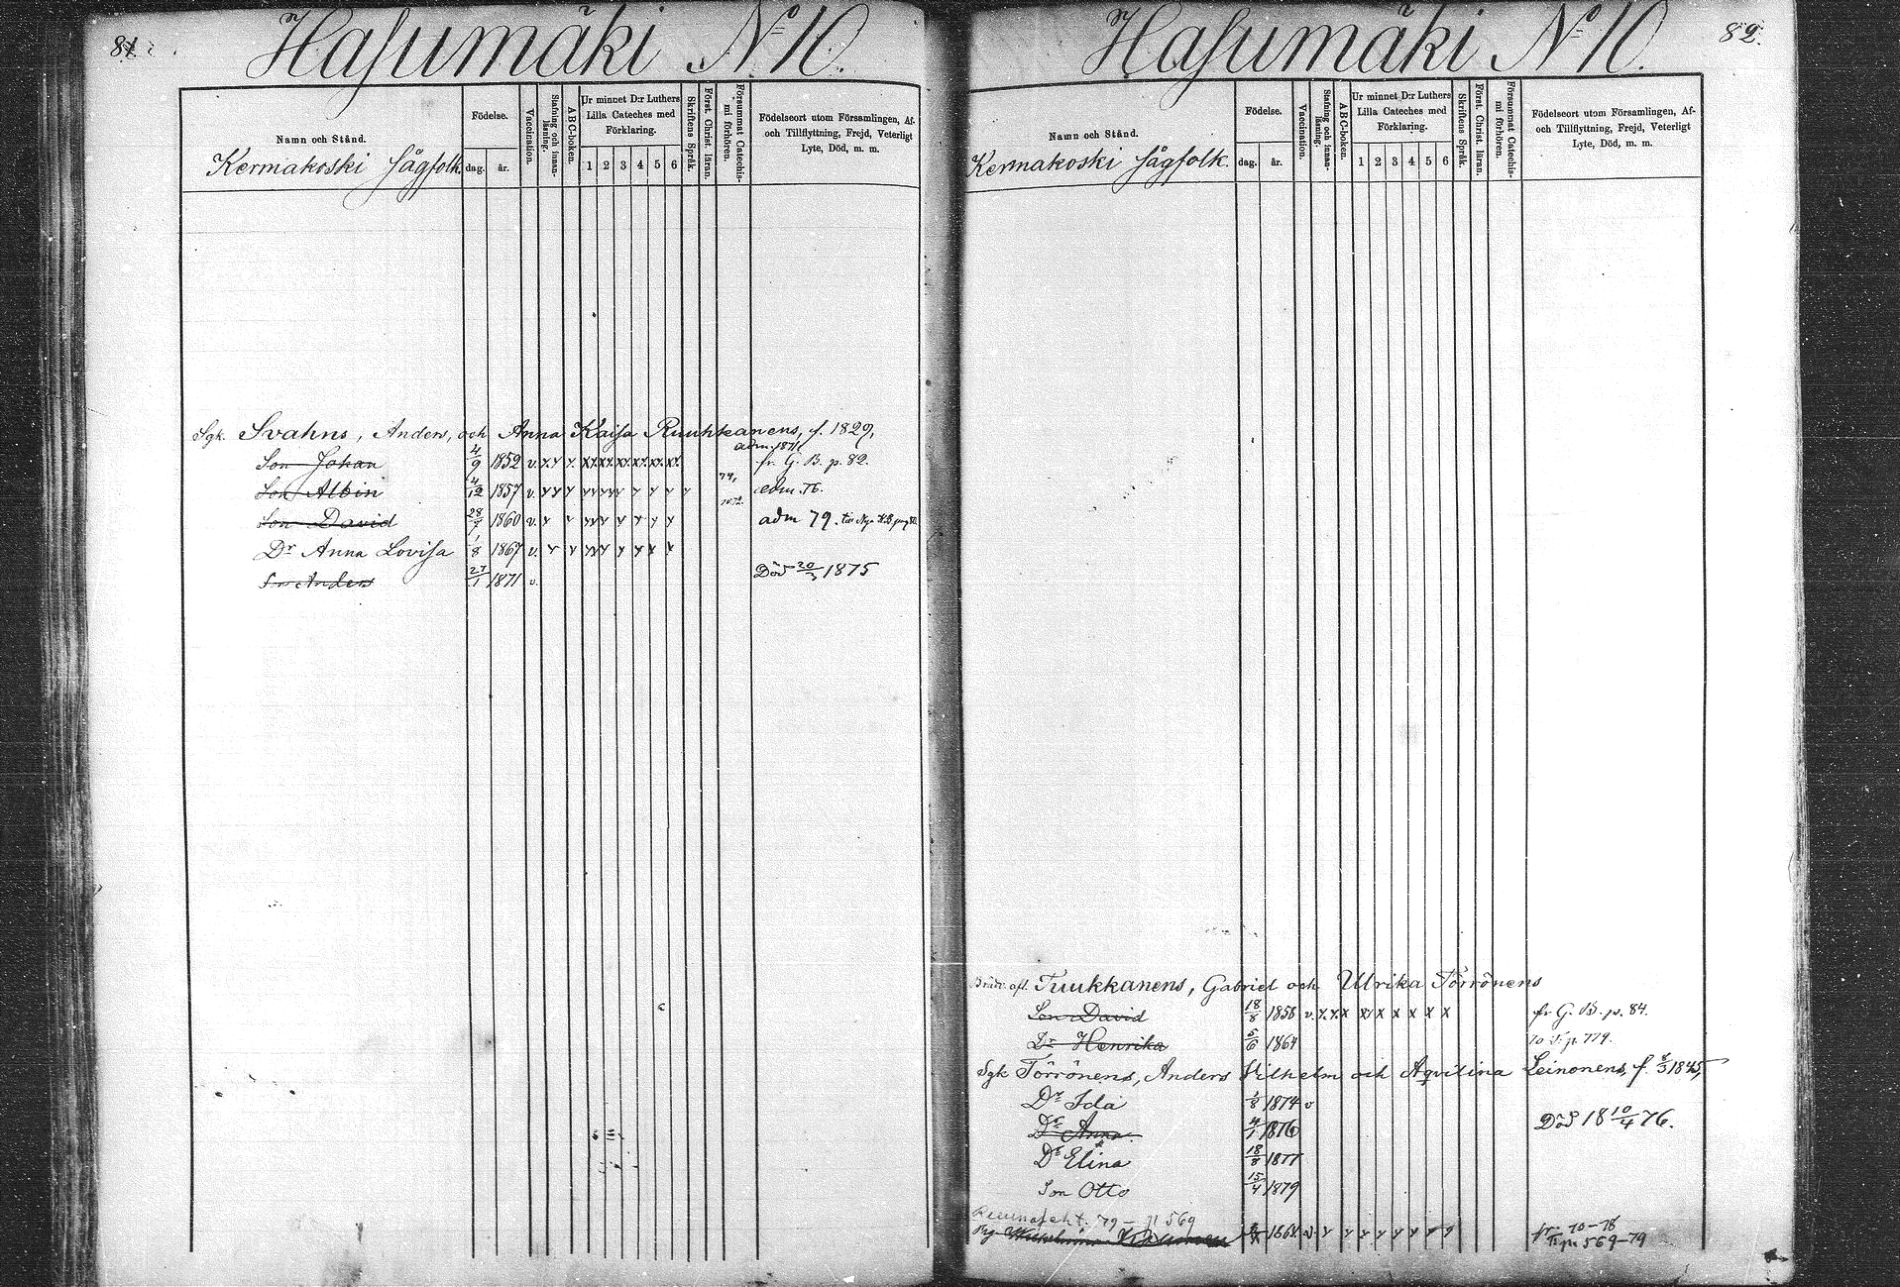 81
Hasumäki No 10.
Namn och Stånd.
Kermakoski sågfolk.
Födelse.
dag. år.
Vaccination.
Stafning och innanläsning.
ABC-boken.
Ur minnet D:r Luthers Lilla Cateches med Förklaring.
1 2 3 4 5 6
Skriftens Språk.
Först. Christ. läran.
Försummat Catechismi förhören.
Födelseort utom Församlingen, Af- och Tillflyttning, Frejd, Veterligt Lyte, Död, m. m.
Sgk. Svahns, Anders, och Anna Kaisa Ruuhkanens, f. 1829,
adm. 1871.
Son Johan 4/9 1852 v. fr. G. B. p. 82.
Son Albin 4/12 1857 v. adm. 76.
Son David 28/7 1860 v. adm 79.
Dr Anna Lovisa 1/8 1867 v.
Son Anders 27/1 1871 v. Död 20/3 1875
82.
Hasumäki No 10.
Namn och Stånd.
Kermakoski sågfolk.
Födelse.
dag. år.
Vaccination.
Stafning och innanläsning.
ABC-boken.
Ur minnet D:r Luthers Lilla Cateches med Förklaring.
1 2 3 4 5 6
Skriftens Språk.
Först. Christ. läran.
Försummat Catechismi förhören.
Födelseort utom Församlingen, Af- och Tillflyttning, Frejd, Veterligt Lyte, Död, m. m.
Tuukkanens, Gabriel och Ulrika Törrönens
Son David 18/8 1858 v. fr. G. B. p. 84.
Dr Henrika 5/6 1864 p. 779.
Sgk Törrönens, Anders Vilhelm och Aqvilina Leinonens, f. 1845,
Dr Ida 1/8 1874 v
Dr Anna 4/1 1876 Död 18 10/4 76.
Dr Elina 18/8 1877
Son Otto 15/4 1879
79 – p 569
fr. 70-78
p. 569-79